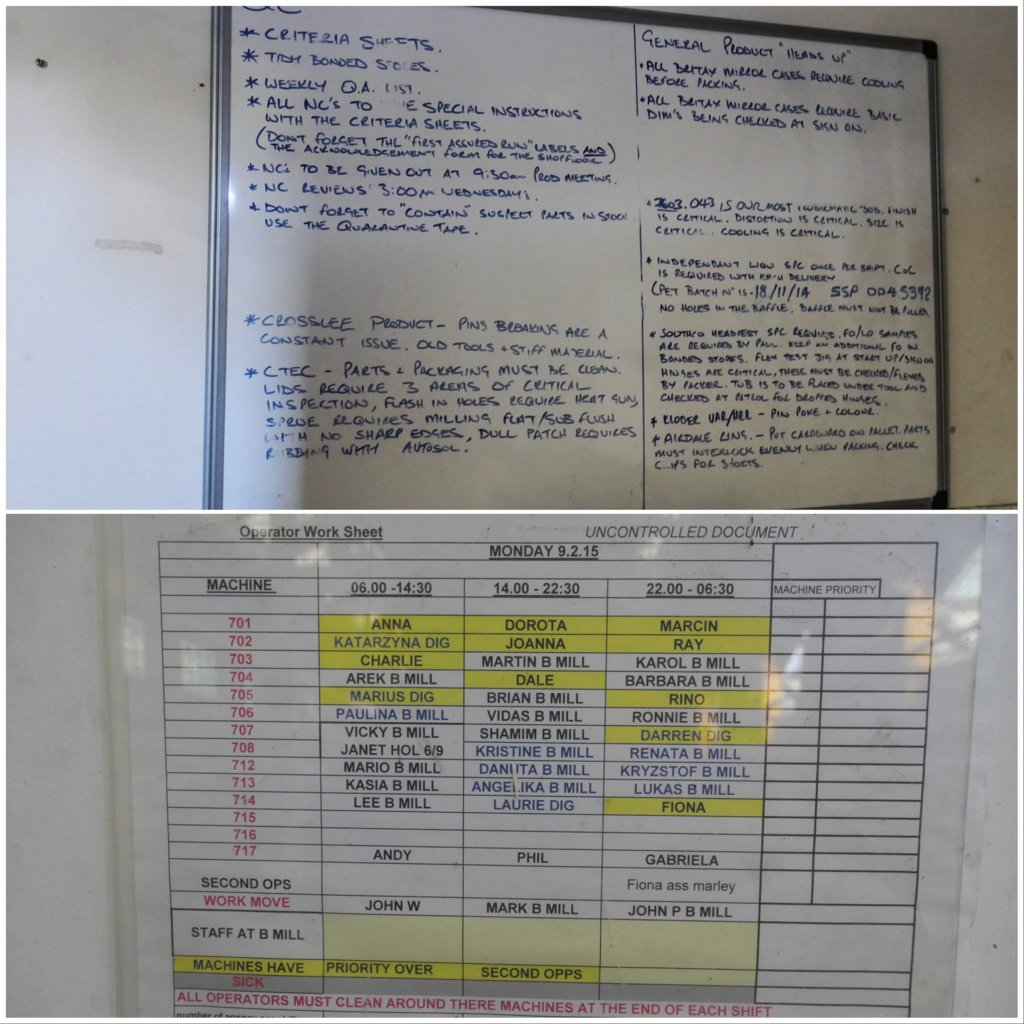 * CRITERIA SHEETS.
* TIDY BONDED STORES.
* WEEKLY Q.A. LIST.
* ALL NC'S TO E SPECIAL INSTRUCTIONS
WITH THE CRITERIA SHEETS.
(DONT FORGET THE "FIRST ASSURED RUN" LABELS AND
THE ACKNOWLEDGEMENT FORM FOR THE SHOPFLOOR)
* NC's TO BE GIVEN OUT AT 9:30am PROD MEETING.
* NC REVIEWS 3:00pm WEDNESDAY'S.
* DON'T FORGET TO "CONTAIN" SUSPECT PARTS IN STOCK
USE THE QUARANTINE TAPE.
* CROSSLEE PRODUCT - PINS BREAKING ARE A
CONSTANT ISSUE. OLD TOOLS + STIFF MATERIAL.
* CTEC - PARTS + PACKAGING MUST BE CLEAN.
LIDS REQUIRE 3 AREAS OF CRITICAL
INSPECTION, FLASH IN HOLES REQUIRE HEAT GUN,
SPRUE REQUIRES MILLING FLAT/SUB FLUSH
WITH NO SHARP EDGES, DULL PATCH REQUIRES
RUBBING WITH AUTOSOL.
GENERAL PRODUCT "HEADS UP"
• ALL BRITAX MIRROR CASES REQUIRE COOLING
BEFORE PACKING.
• ALL BRITAX MIRROR CASES REQUIRE BASIC
DIM'S BEING CHECKED AT SIGN ON.
* 7603.043 IS OUR MOST PROBLEMATIC JOB. FINISH
IS CRITICAL. DISTORTION IS CRITICAL. SIZE IS
CRITICAL. COOLING IS CRITICAL.
* INDEPENDANT LIQU SPC ONCE PER SHIFT. CoC
IS REQUIRED WITH EACH DELIVERY
(PET BATCH Nº IS - 18/11/14 SSP 0045392
NO HOLES IN THE BAFFLE. BAFFLE MUST NOT BE PULLED.
* SOUTHCO HEADREST SPC REQUIRED. FO/LO SAMPLES
ARE REQUIRED BY PAUL. KEEP AN ADDITIONAL FO IN
BONDED STORES. FLEX TEST JIG AT START UP/SIGN ON
HINGES ARE CRITICAL, THESE MUST BE CHECKED/FLEXED
BY PACKER. TUB IS TO BE PLACED UNDER TOOL AND
CHECKED AT PATROL FOR DROPPED HINGES.
* KLOBER VAR/HRL - PIN POKE + COLOUR.
* AIRDALE RING. - PUT CARDBOARD ON PALLET. PARTS
MUST INTERLOCK EVENLY WHEN PACKING. CHECK
CLIPS FOR SHORTS.
Operator Work Sheet UNCONTROLLED DOCUMENT
MONDAY 9.2.15
MACHINE 06.00 -14:30 14.00 - 22:30 22.00 - 06:30 MACHINE PRIORITY
701 ANNA DOROTA MARCIN
702 KATARZYNA DIG JOANNA RAY
703 CHARLIE MARTIN B MILL KAROL B MILL
704 AREK B MILL DALE BARBARA B MILL
705 MARIUS DIG BRIAN B MILL RINO
706 PAULINA B MILL VIDAS B MILL RONNIE B MILL
707 VICKY B MILL SHAMIM B MILL DARREN DIG
708 JANET HOL 6/9 KRISTINE B MILL RENATA B MILL
712 MARIO B MILL DANUTA B MILL KRYZSTOF B MILL
713 KASIA B MILL ANGELIKA B MILL LUKAS B MILL
714 LEE B MILL LAURIE DIG FIONA
715
716
717 ANDY PHIL GABRIELA
SECOND OPS Fiona ass marley
WORK MOVE JOHN W MARK B MILL JOHN P B MILL
STAFF AT B MILL
MACHINES HAVE PRIORITY OVER SECOND OPPS
SICK
ALL OPERATORS MUST CLEAN AROUND THERE MACHINES AT THE END OF EACH SHIFT